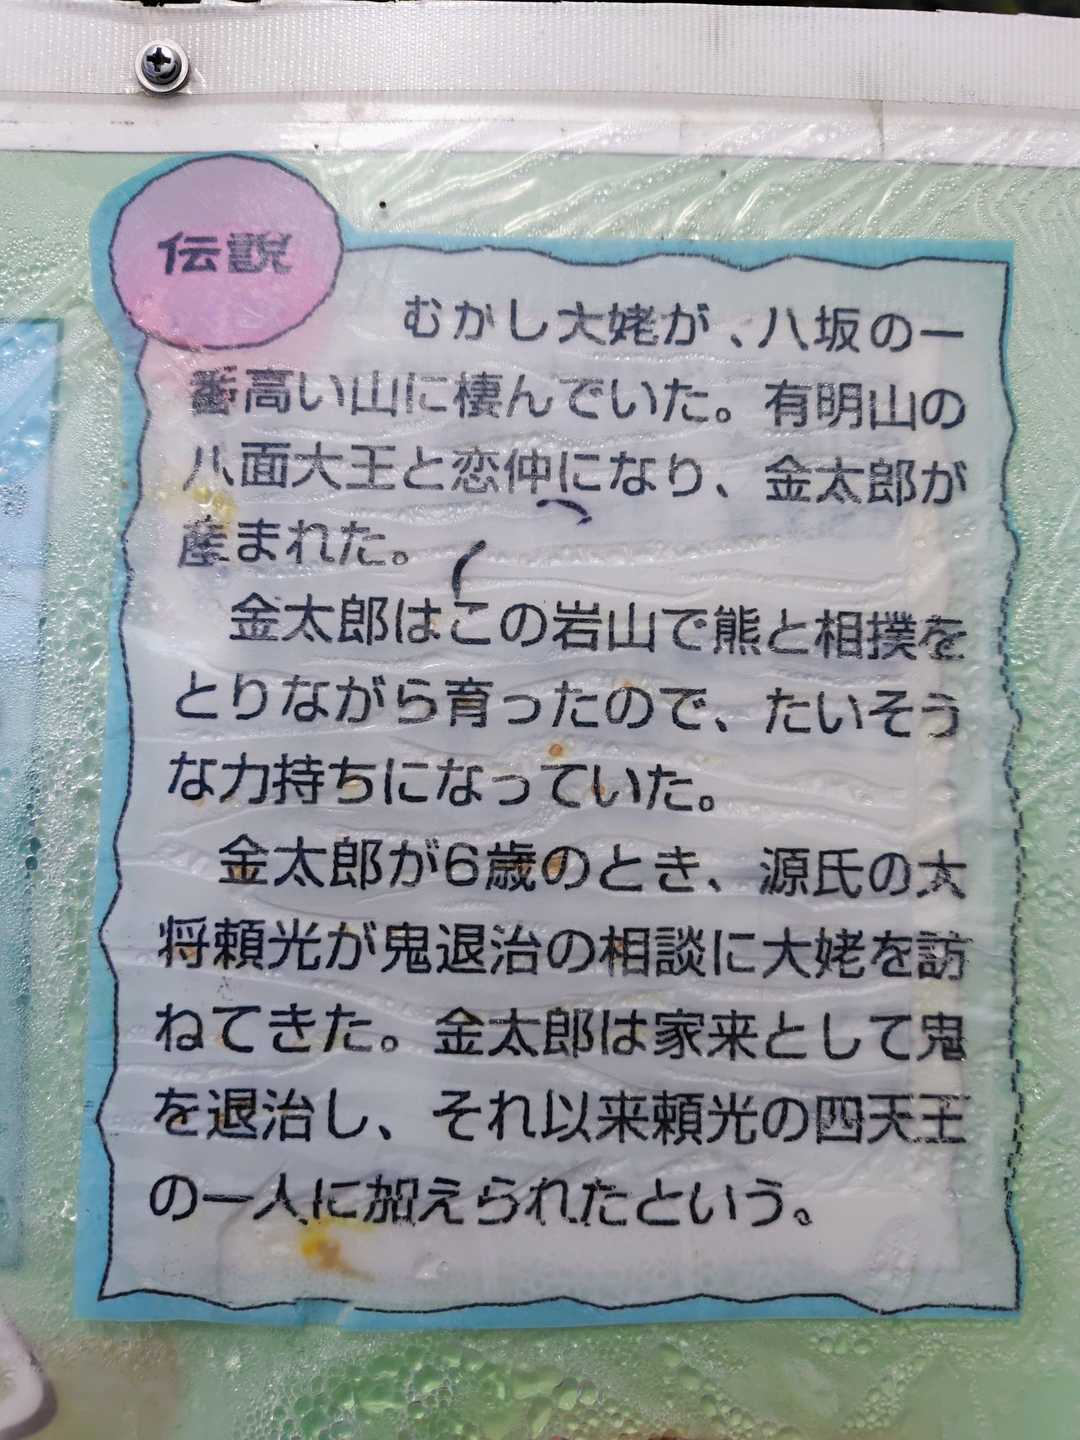 伝説
むかし大姥が、八坂の一
番高い山に棲んでいた。有明山の
八面大王と恋仲になり、金太郎が
産まれた。
金太郎はこの岩山で熊と相撲を
とりながら育ったので、たいそう
な力持ちになっていた。
金太郎が6歳のとき、源氏の大
将頼光が鬼退治の相談に大姥を訪
ねてきた。金太郎は家来として鬼
を退治し、それ以来頼光の四天王
の一人に加えられたという。